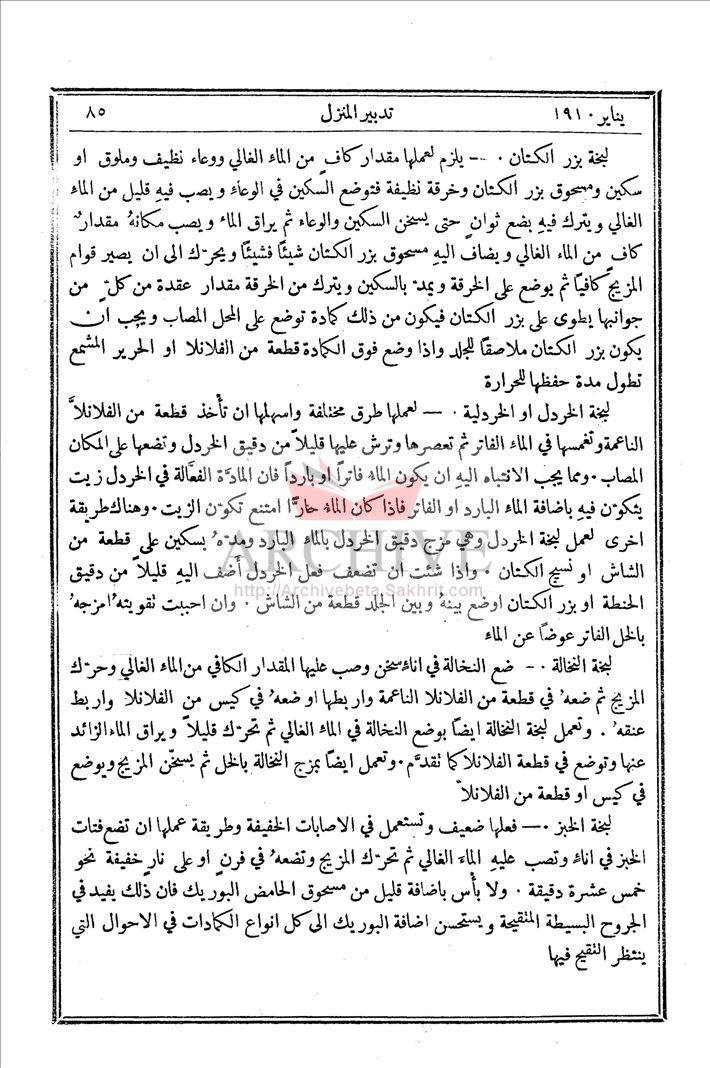 يناير ١٩١٠ تدبير المنزل ٨٥
لبخة بزر الكتان ٠ — يلزم لعملها مقدار كافٍ من الماء الغالي ووعاء نظيف وملوق او
سكين ومسحوق بزر الكتان وخرقة نظيفة فتوضع السكين في الوعاء ويصب فيهِ قليل من الماء
الغالي ويترك فيهِ بضع ثوانٍ حتى يسخن السكين والوعاء ثم يراق الماء ويصب مكانهُ مقدارٌ
كافٍ من الماء الغالي ويضاف اليهِ مسحوق بزر الكتان شيئًا فشيئًا ويحرَّك الى ان يصير قوام
المزيج كافيًا ثم يوضع على الخرقة ويمدّ بالسكين ويترك من الخرقة مقدار عقدة من كلٍّ من
جوانبها يطوى على بزر الكتان فيكون من ذلك كمادة توضع على المحل المصاب ويجب ان
يكون بزر الكتان ملاصقًا للجلد واذا وضع فوق الكمادة قطعة من الفلانلا او الحرير المشمع
تطول مدة حفظها للحرارة
لبخة الخردل او الخردلية ٠ — لعملها طرق مختلفة واسهلها ان تأخذ قطعة من الفلانلاَّ
الناعمة وتغمسها في الماء الفاتر ثم تعصرها وترش عليها قليلاً من دقيق الخردل وتضعها على المكان
المصاب ٠ ومما يجب الانتباه اليهِ ان يكون الماء فاترًا او باردًا فان المادَّة الفعَّالة في الخردل زيت
يتكوَّن فيهِ باضافة الماء البارد او الفاتر فاذا كان الماء حارًّا امتنع تكوُّن الزيت ٠ وهناك طريقة
اخرى لعمل لبخة الخردل وهي مزج دقيق الخردل بالماء البارد ومدّهُ بسكين على قطعة من
الشاش او نسيج الكتان ٠ واذا شئت ان تضعف فعل الخردل أَضف اليهِ قليلاً من دقيق
الحنطة او بزر الكتان اوضع بينهُ وبين الجلد قطعة من الشاش ٠ وان احببت تقويتهُ امزجهُ
بالخل الفاتر عوضًا عن الماء
لبخة النخالة ٠ — ضع النخالة في اناء سخن وصب عليها المقدار الكافي من الماء الغالي وحرّك
المزيج ثم ضعهُ في قطعة من الفلانلا الناعمة واربطها او ضعهُ في كيس من الفلانلا واربط
عنقهُ . وتعمل لبخة النخالة ايضًا بوضع النخالة في الماء الغالي ثم تحرَّك قليلاً ويراق الماء الزائد
عنها وتوضع في قطعة الفلانلا كما تقدَّم ٠ وتعمل ايضًا بمزج النخالة بالخل ثم يسخَّن المزيج ويوضع
في كيس او قطعة من الفلانلاّ
لبخة الخبز ٠ — فعلها ضعيف وتستعمل في الاصابات الخفيفة وطريقة عملها ان تضع فتات
الخبز في اناء وتصب عليهِ الماء الغالي ثم تحرّك المزيج وتضعهُ في فرن او على نارٍ خفيفة نحو
خمس عشرة دقيقة ٠ ولا بأْس باضافة قليل من مسحوق الحامض البوريك فان ذلك يفيد في
الجروح البسيطة المتقيحة ويستحسن اضافة البوريك الى كل انواع الكمادات في الاحوال التي
ينتظر التقيح فيها
ARCHIVE
http://Archivebeta.Sakhrit.com